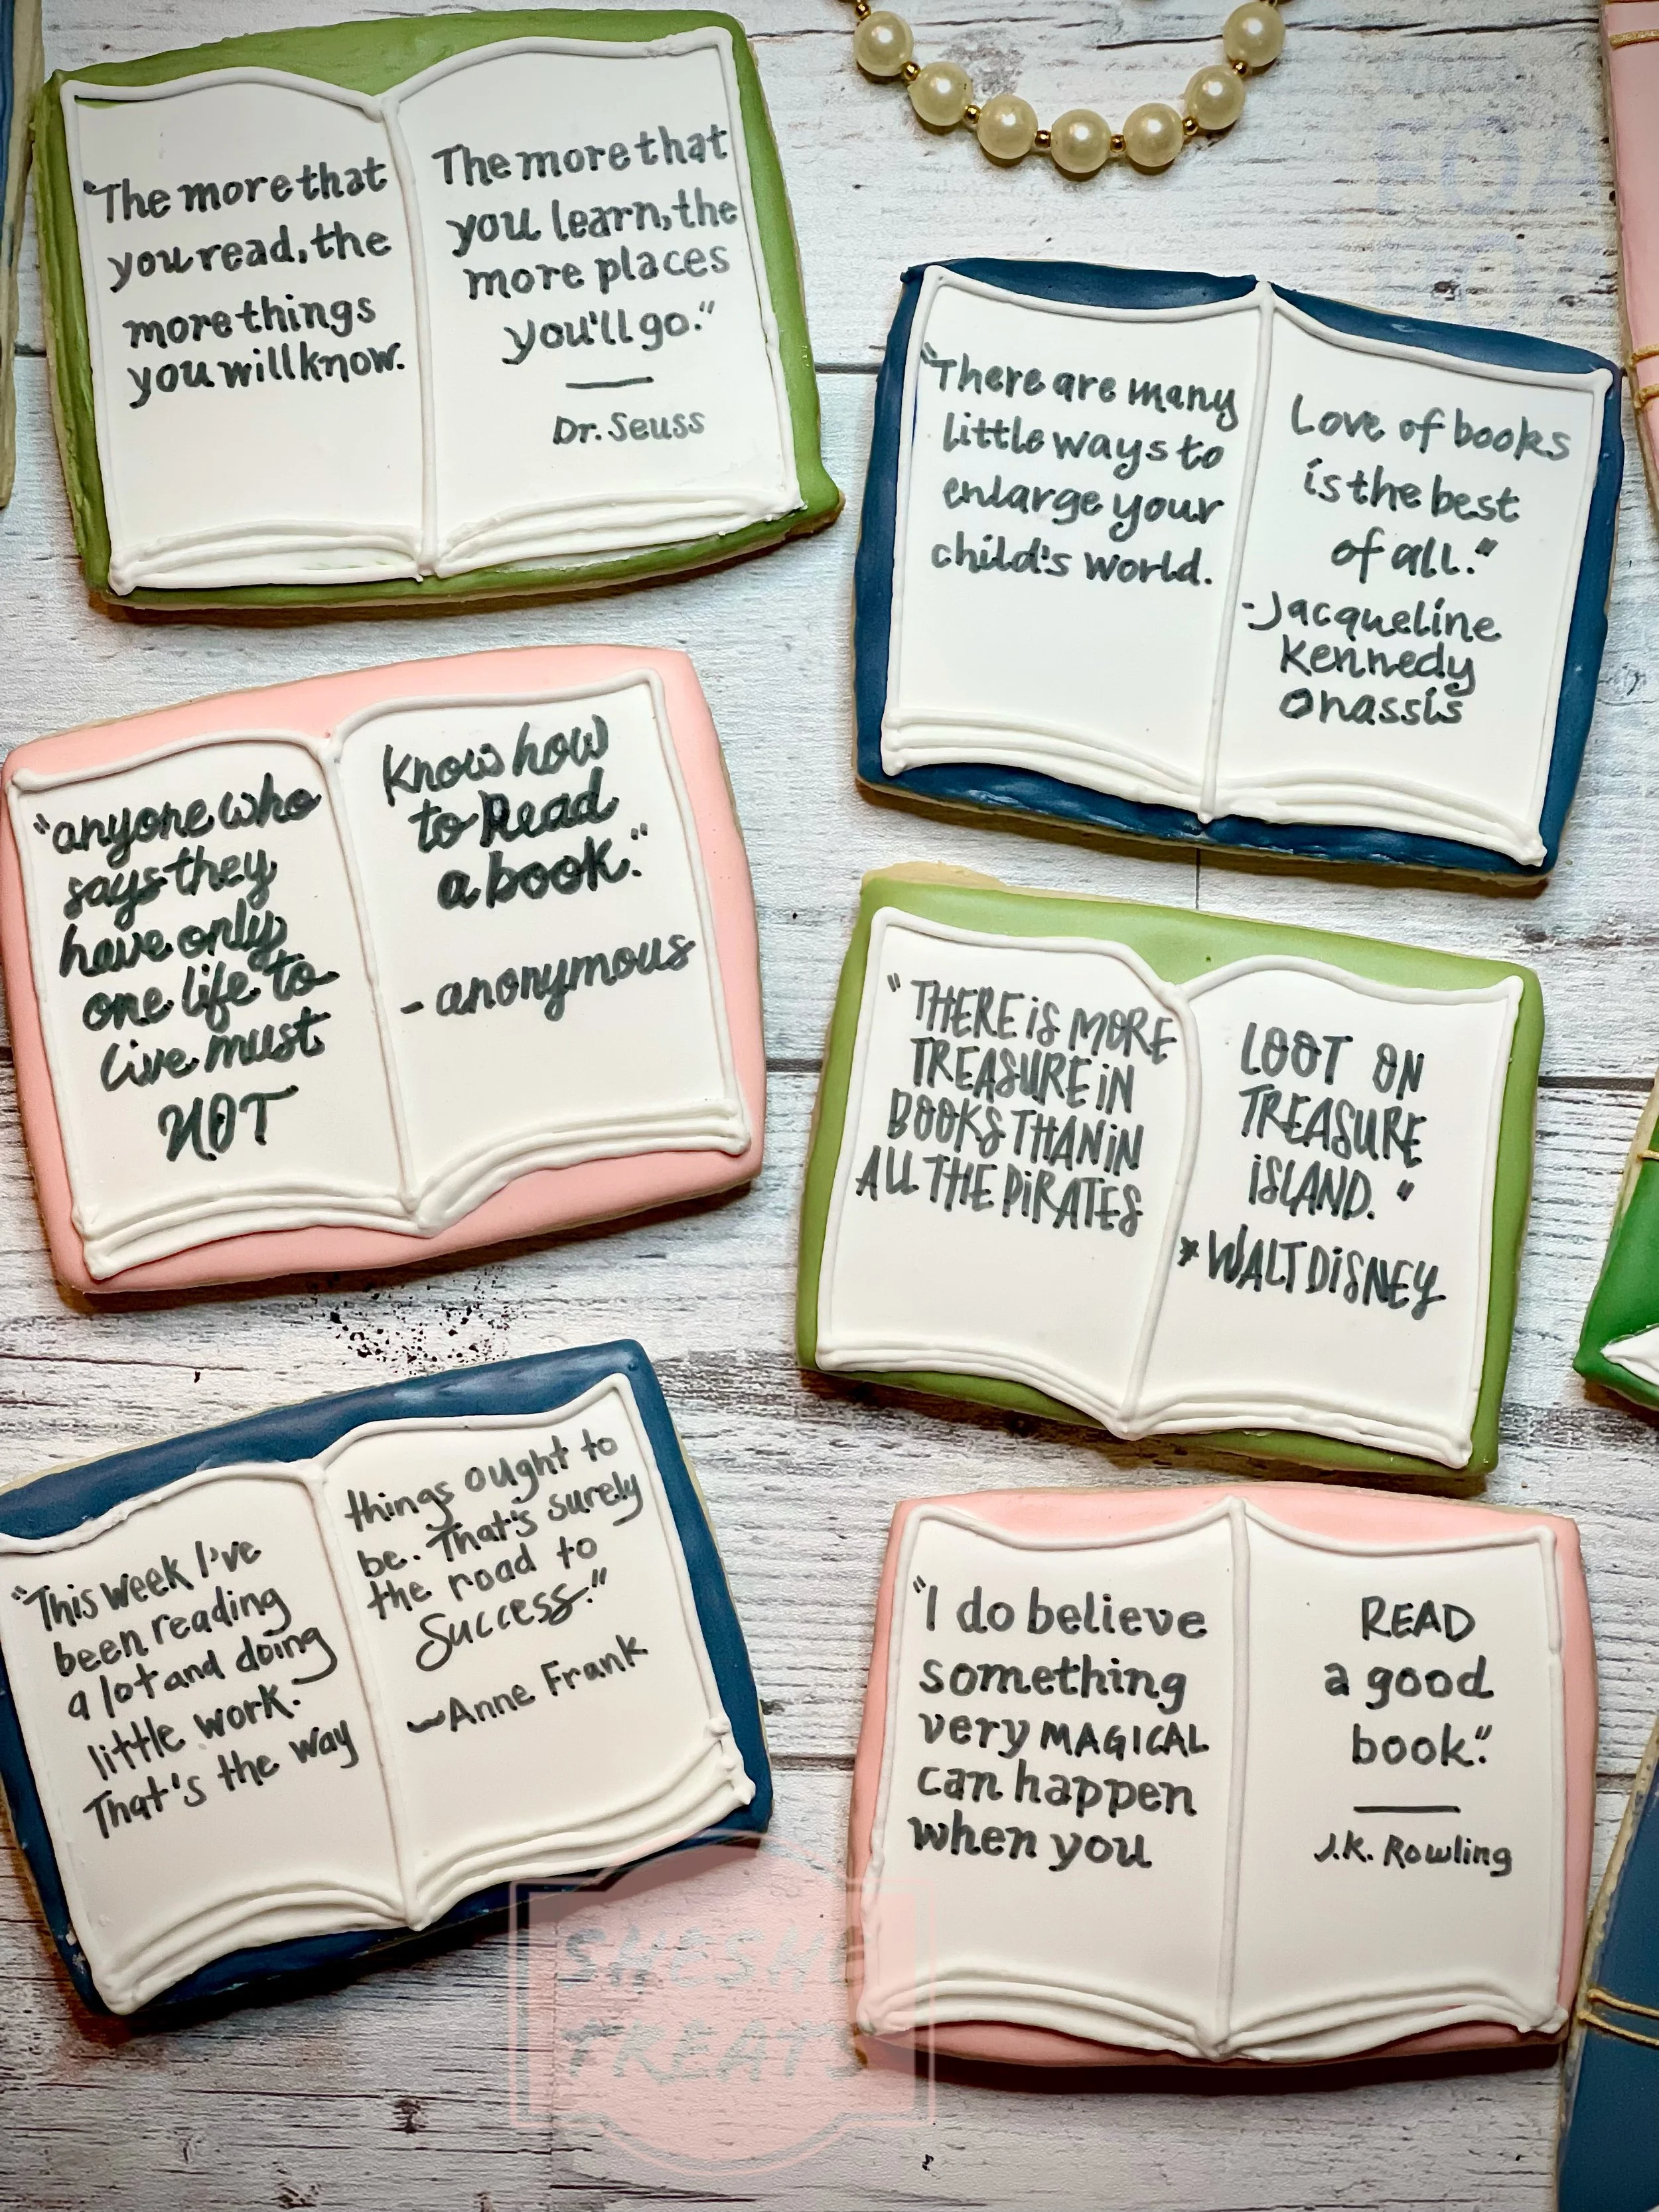 "The more that
you read, the
more things
you will know.
The more that
you learn, the
more places
you'll go."
Dr. Seuss
"There are many
little ways to
enlarge your
child's world.
Love of books
is the best
of all."
-Jacqueline
Kennedy
Onassis
"anyone who
says they
have only
one life to
live must
NOT
Know how
to Read
a book."
- anonymous
"THERE iS MORE
TREASURE iN
BOOKS THAN iN
ALL THE PiRATES
LOOT ON
TREASURE
iSLAND."
*WALT DiSNEY
"This week I've
been reading
a lot and doing
little work.
That's the way
things ought to
be. That's surely
the road to
Success."
~Anne Frank
"I do believe
something
very MAGICAL
can happen
when you
READ
a good
book."
J.K. Rowling
SHESHE
TREATS